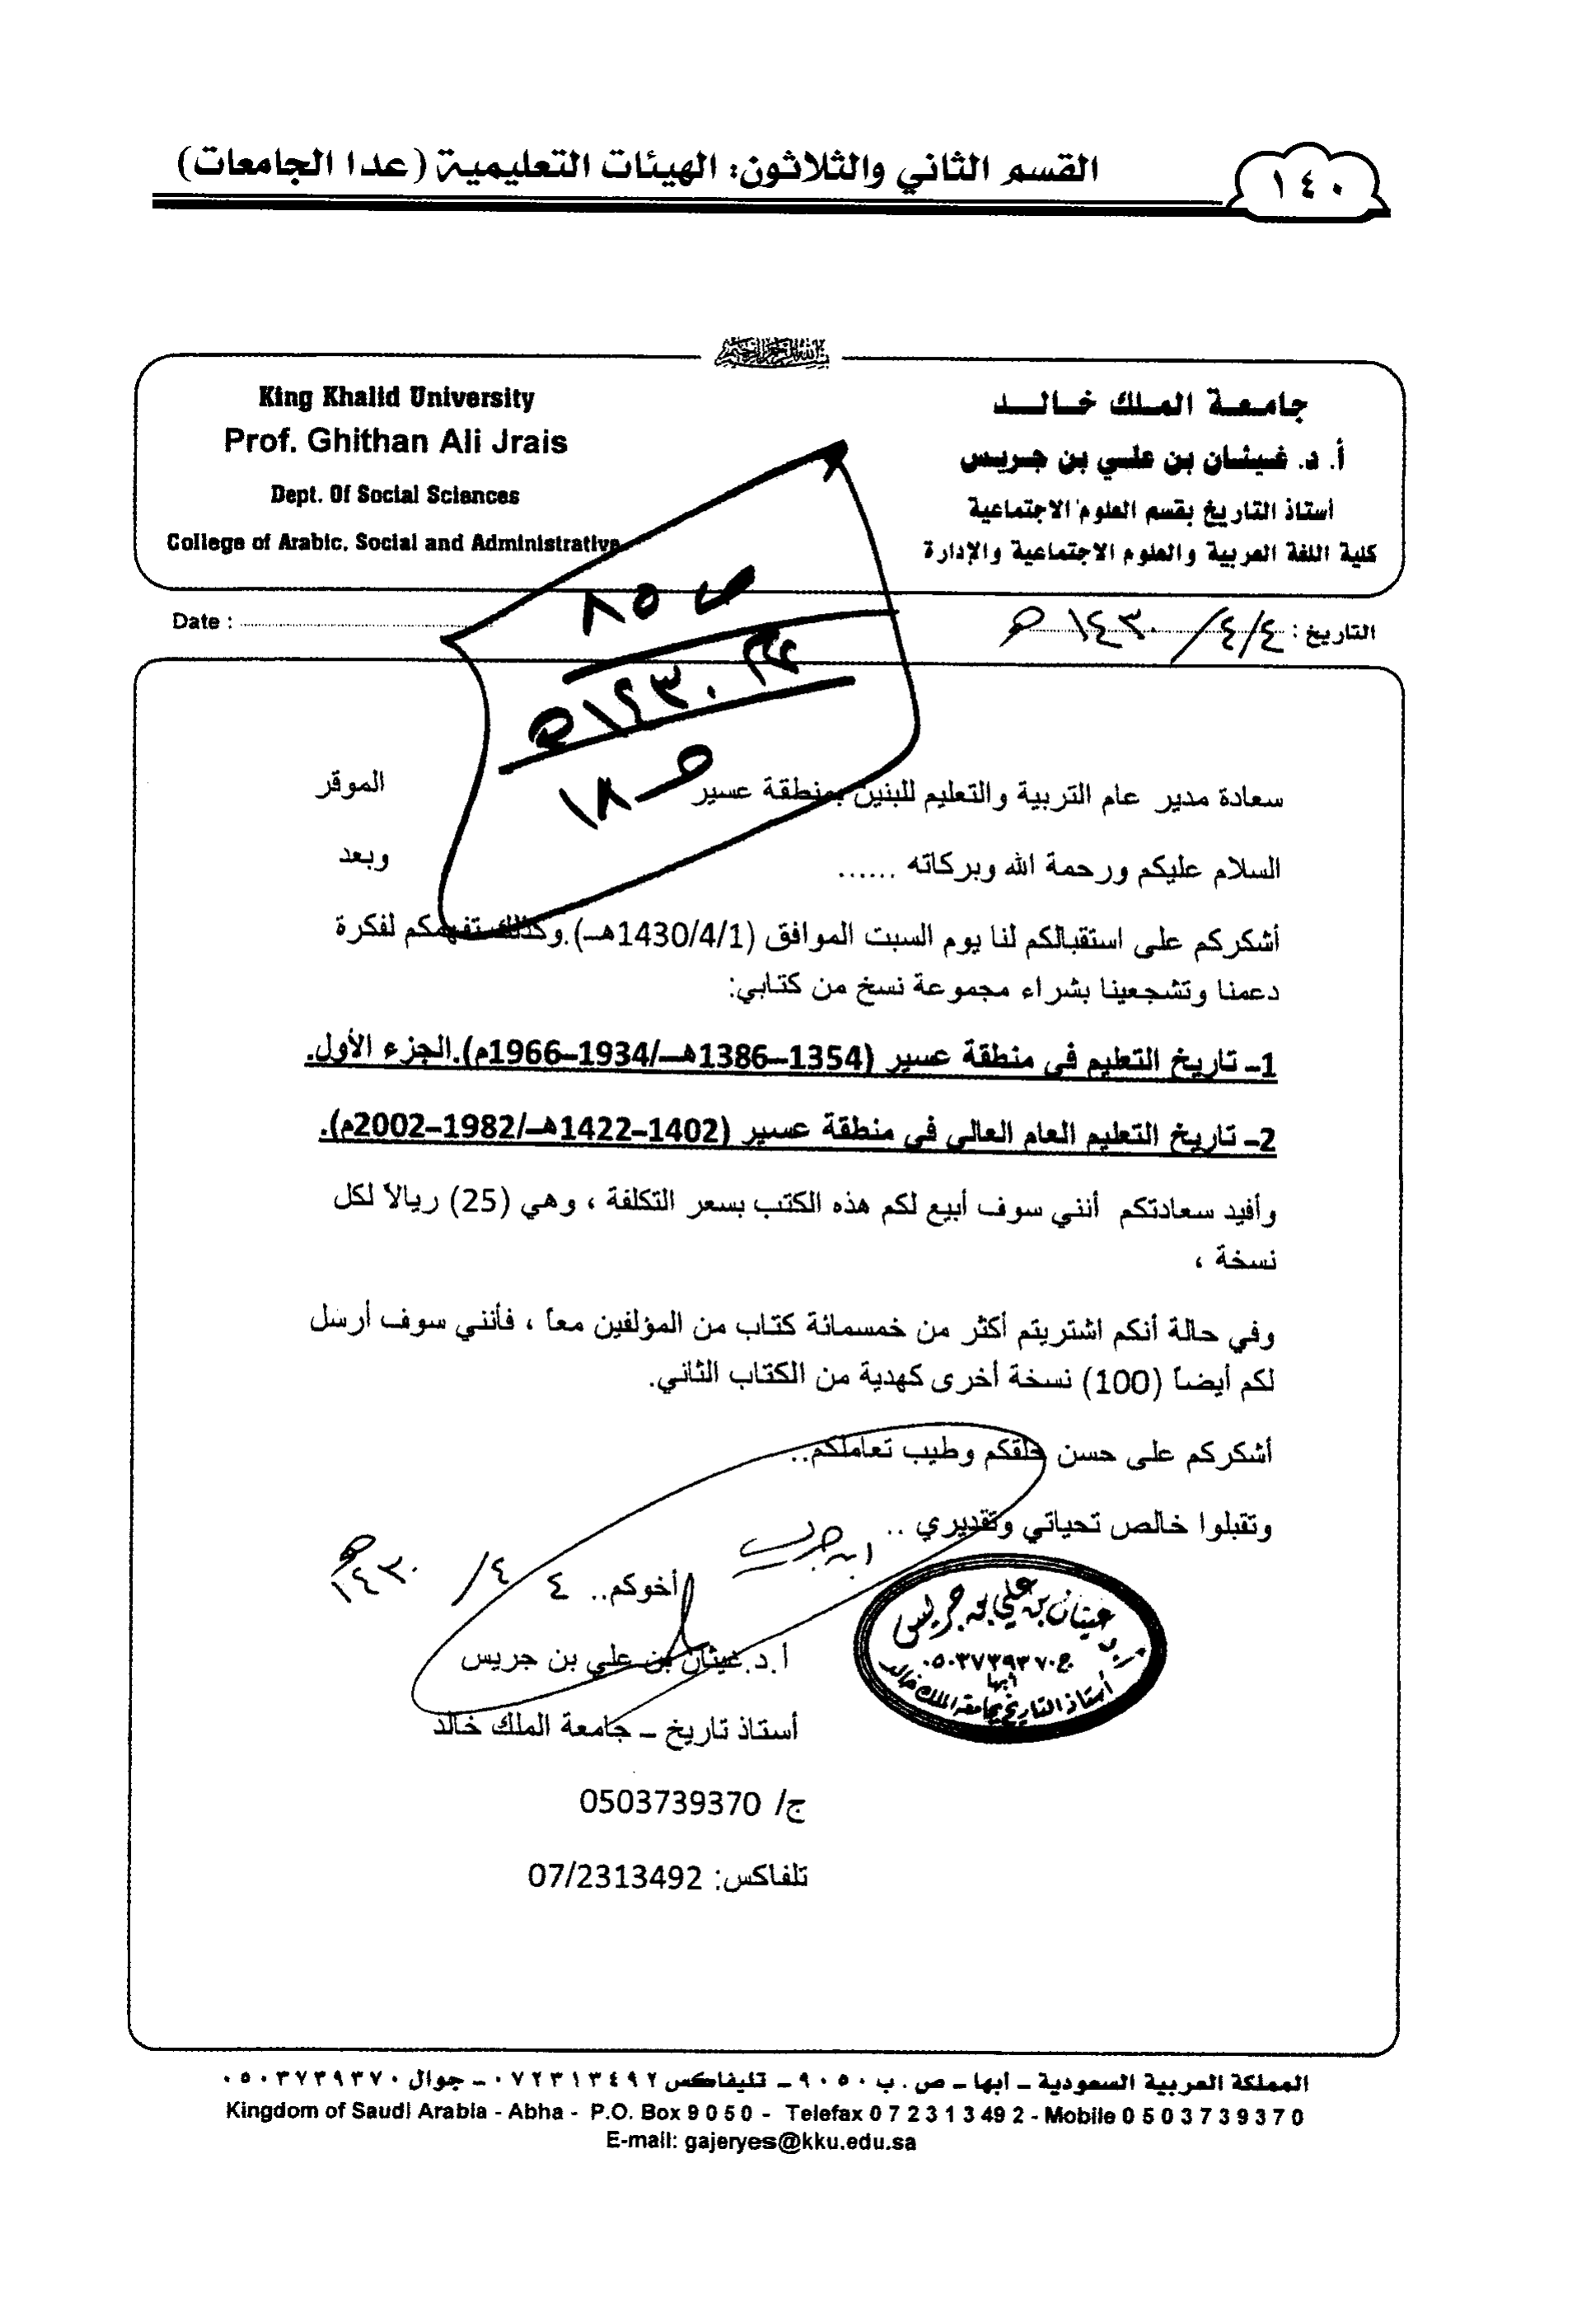 ١٤٠
القسم الثاني والثلاثون: الهيئات التعليمية (عدا الجامعات)
بسم الله الرحمن الرحيم
جامعة الملك خالد
أ. د. غيثان بن علي بن جريس
أستاذ التاريخ بقسم العلوم الاجتماعية
كلية اللغة العربية والعلوم الاجتماعية والإدارة
King Khalid University
Prof. Ghithan Ali Jrais
Dept. Of Social Sciences
College of Arabic, Social and Administrative
التاريخ : ٤/٤/ ١٤٣٠هـ
Date :
ص ٨٥
عام ١٤٣٠هـ
صـ ١٨
سعادة مدير عام التربية والتعليم للبنين بمنطقة عسير الموقر
السلام عليكم ورحمة الله وبركاته ...... وبعد
أشكركم على استقبالكم لنا يوم السبت الموافق (1430/4/1هـ).وكذلك تفهمكم لفكرة
دعمنا وتشجعينا بشراء مجموعة نسخ من كتابي:
1- تاريخ التعليم في منطقة عسير (1354-1386هـ/1934-1966م).الجزء الأول.
2- تاريخ التعليم العام العالي في منطقة عسير (1402-1422هـ/1982-2002م).
وأفيد سعادتكم أنني سوف أبيع لكم هذه الكتب بسعر التكلفة ، وهي (25) ريالاً لكل
نسخة ،
وفي حالة أنكم اشتريتم أكثر من خمسمائة كتاب من المؤلفين معاً ، فأنني سوف أرسل
لكم أيضاً (100) نسخة أخرى كهدية من الكتاب الثاني.
أشكركم على حسن خلقكم وطيب تعاملكم..
وتقبلوا خالص تحياتي وتقديري ..
ابن جريس
أخوكم.. ٤ /٤ /١٤٣٠هـ
أ.د.غيثان بن علي بن جريس
أستاذ تاريخ – جامعة الملك خالد
ج/ 0503739370
تلفاكس: 07/2313492
أ.د غيثان بن علي بن جريس
ج.٠٥٠٣٧٣٩٣٧٠
أبها
أستاذ التاريخ بجامعة الملك خالد
المملكة العربية السعودية – أبها – ص . ب ٩٠٥٠ – تليفاكس ٠٧٢٣١٣٤٩٢ – جوال ٠٥٠٣٧٣٩٣٧٠
Kingdom of Saudi Arabia - Abha - P.O. Box 9 0 5 0 - Telefax 0 7 2 3 1 3 49 2 - Mobile 0 5 0 3 7 3 9 3 7 0
E-mail: gajeryes@kku.edu.sa